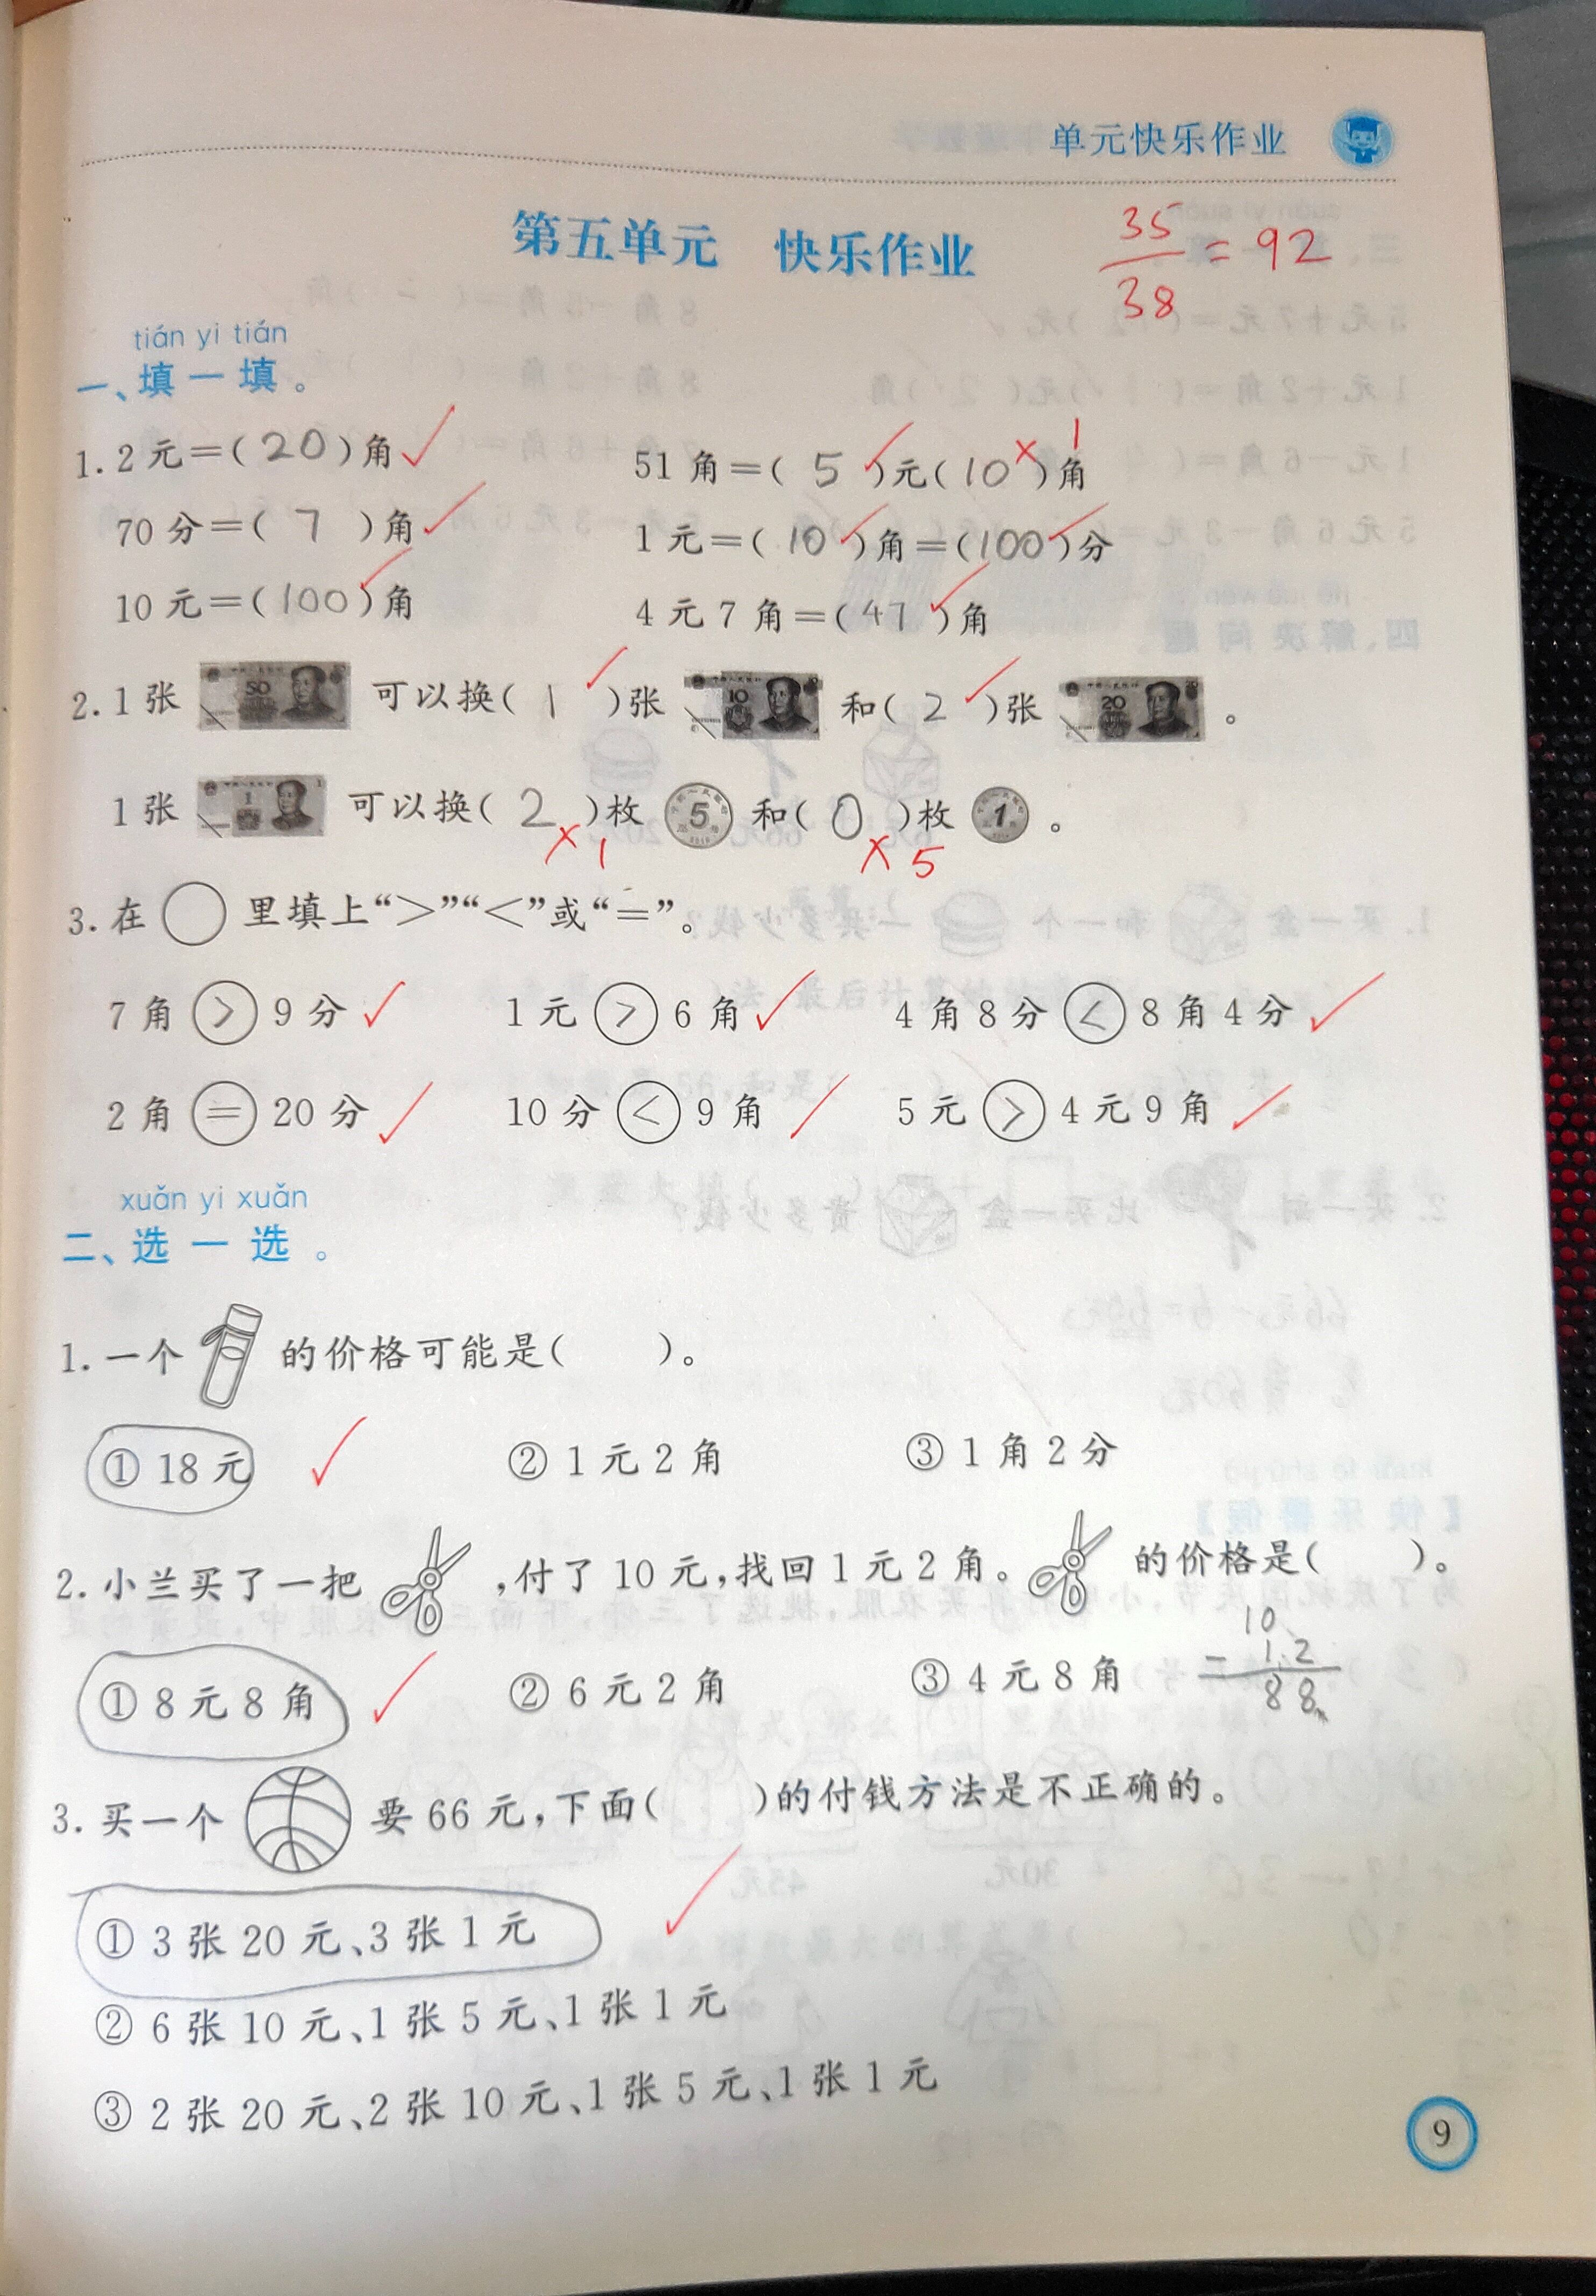 单元快乐作业
第五单元 快乐作业
35/38 = 92
tián yi tián
一、填一填。
1. 2元=(20)角 51角=(5)元(10)角 1
70分=(7)角 1元=(10)角=(100)分
10元=(100)角 4元7角=(47)角
2. 1张 50 可以换(1)张 10 和(2)张 20 。
1张 1 可以换(2)枚 5 和(0)枚 1 。
1 5
3. 在○里填上“>”“<”或“=”。
7角>9分 1元>6角 4角8分<8角4分
2角=20分 10分<9角 5元>4元9角
xuǎn yi xuǎn
二、选一选。
1. 一个 的价格可能是( )。
①18元 ②1元2角 ③1角2分
2. 小兰买了一把 ,付了10元,找回1元2角。 的价格是( )。
10
①8元8角 ②6元2角 ③4元8角 - 1.2
8 8
3. 买一个 要66元,下面( )的付钱方法是不正确的。
①3张20元、3张1元
②6张10元、1张5元、1张1元
③2张20元、2张10元、1张5元、1张1元
9